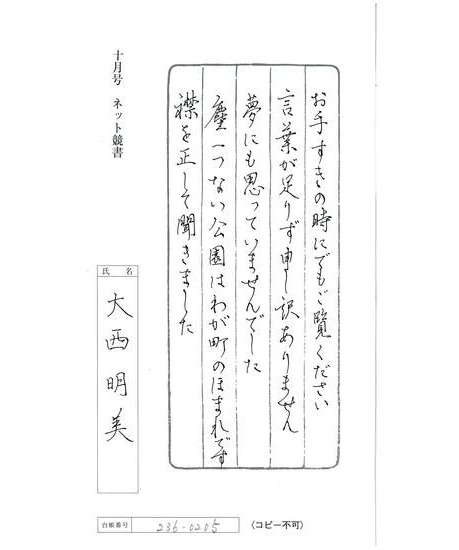 お手すきの時にでもご覧ください
言葉が足りず申し訳ありません
夢にも思っていませんでした
塵一つない公園はわが町のほまれです
襟を正して聞きました
十月号 ネット競書
氏名
大西明美
台帳番号
236-0205
〈コピー不可〉